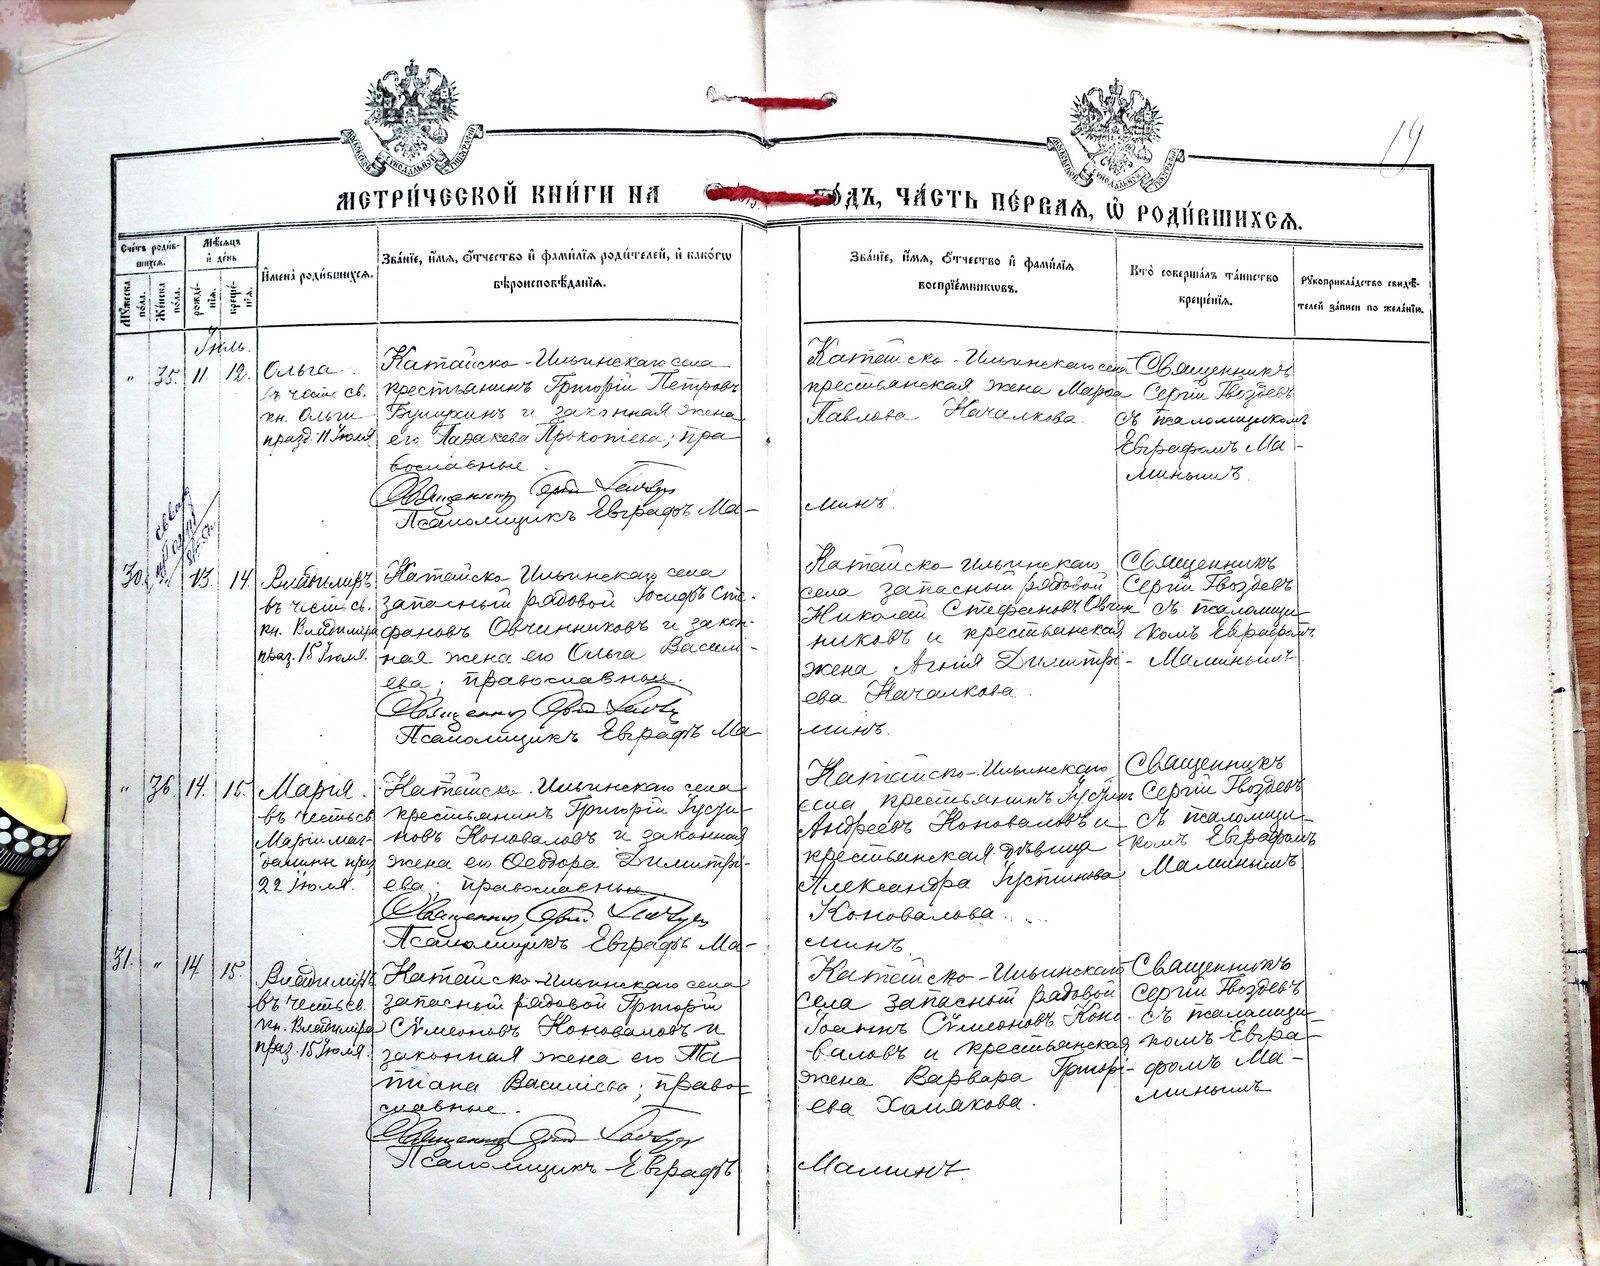 19
МЕТРИ́ЧЕСКОЙ КНИ́ГИ НА
ГО́ДЪ, ЧА́СТЬ ПЕ́РВАЯ, Ѡ РОДИ́ВШИХСЯ.
Сче́тъ роди́в-
шихся.
Му́жеска по́ла.
Же́нска по́ла.
Мѣ́сяцъ
и де́нь
рожде-
нія.
креще-
нія.
Имена̀ роди́вшихся.
Зва́ніе, и́мя, о́тчество и фами́лія роди́телей, и како́гѡ
вѣроисповѣ́данія.
Зва́ніе, и́мя, о́тчество и фами́лія
воспріе́мниковъ.
Кто̀ соверша́лъ та́инство
креще́нія.
Рукоприкла́дство свидѣ́-
телей за́писи по жела́нію.
Іюль.
„ 35. 11 12.
Ольга.
въ честь св.
кн. Ольги
празд. 11 Іюля
Катайско-Ильинскаго села
крестьянинъ Григорій Петровъ
и законная жена
его Прокопіева; пра
вославные.
Священникъ Сергій Гвоздевъ
Псаломщикъ Евграфъ Ма-
Катайско-Ильинскаго села
крестьянская жена Марѳа
Павлова Качалкова.
минъ.
Священникъ
Сергій Гвоздевъ
съ псаломщикомъ
Евграфомъ Ма-
минымъ.
30. „ 13. 14.
Владиміръ
въ честь св.
кн. Владиміра
праз. 15 Іюля.
Катайско-Ильинскаго села
запасный рядовой Іосифъ Сте-
фановъ Овчинниковъ и закон-
ная жена его Ольга Васильі-
ева; православные.
Священникъ Сергій Гвоздевъ
Псаломщикъ Евграфъ Ма
Катайско-Ильинскаго
села запасный рядовой
Николай Стефановъ Овчин
никовъ и крестьянская
жена Агнія Димитрі-
ева Качалкова.
минъ.
Священникъ
Сергій Гвоздевъ
съ псаломщи-
комъ Евграфомъ
Маминымъ
„ 36. 14. 15.
Марія.
въ честь св.
Маріи маг-
далины праз
22 Іюля.
Катайско-Ильинскаго села
крестьянинъ Григорій Іусти-
новъ Коноваловъ и законная
жена его Ѳеодора Димитрі-
ева; православные.
Священникъ Сергій Гвоздевъ
Псаломщикъ Евграфъ Ма-
Катайско-Ильинскаго
села крестьянинъ Іустинъ
Андреевъ Коноваловъ и
крестьянская дѣвица
Александра Іустинова
Коновалова.
минъ.
Священникъ
Сергій Гвоздевъ
съ псаломщи-
комъ Евграфомъ
Маминымъ
31. „ 14 15.
Владиміръ
въ честь св.
кн. Владиміра
праз. 15 Іюля.
Катайско-Ильинскаго села
запасный рядовой Григорій
Сѵмеоновъ Коноваловъ и
законная жена его Та-
тіана Василіева; право-
славные.
Священникъ Сергій Гвоздевъ
Псаломщикъ Евграфъ
Катайско-Ильинскаго
села запасный рядовой
Іоаннъ Сѵмеоновъ Коно-
валовъ и крестьянская
жена Варвара Григорі-
ева Хомякова.
Маминъ.
Священникъ
Сергій Гвоздевъ
съ псаломщи-
комъ Евгра-
фомъ Ма-
минымъ